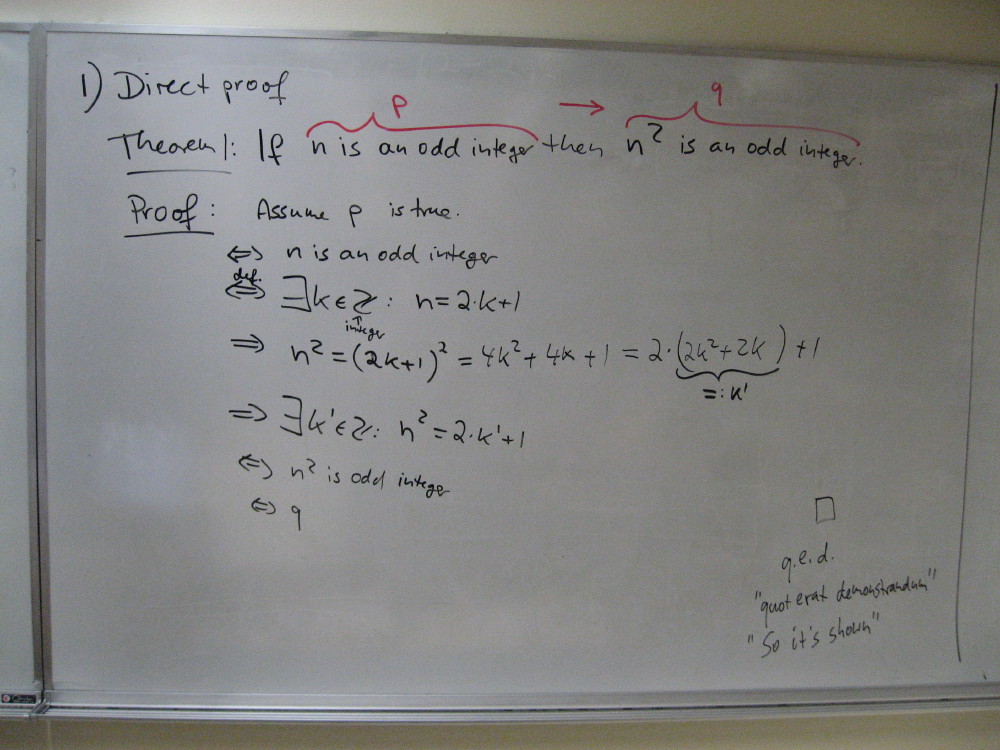 1) Direct proof
p → q
Theorem 1: If n is an odd integer then n² is an odd integer.
Proof: Assume p is true.
⇔ n is an odd integer
def.
⇔ ∃k∈ℤ: n=2·k+1
↑
integer
⇒ n² = (2k+1)² = 4k² + 4k + 1 = 2·(2k²+2k) + 1
=: k'
⇒ ∃k'∈ℤ: n² = 2·k'+1
⇔ n² is odd integer
⇔ q
□
q.e.d.
"quot erat demonstrandum"
"So it's shown"